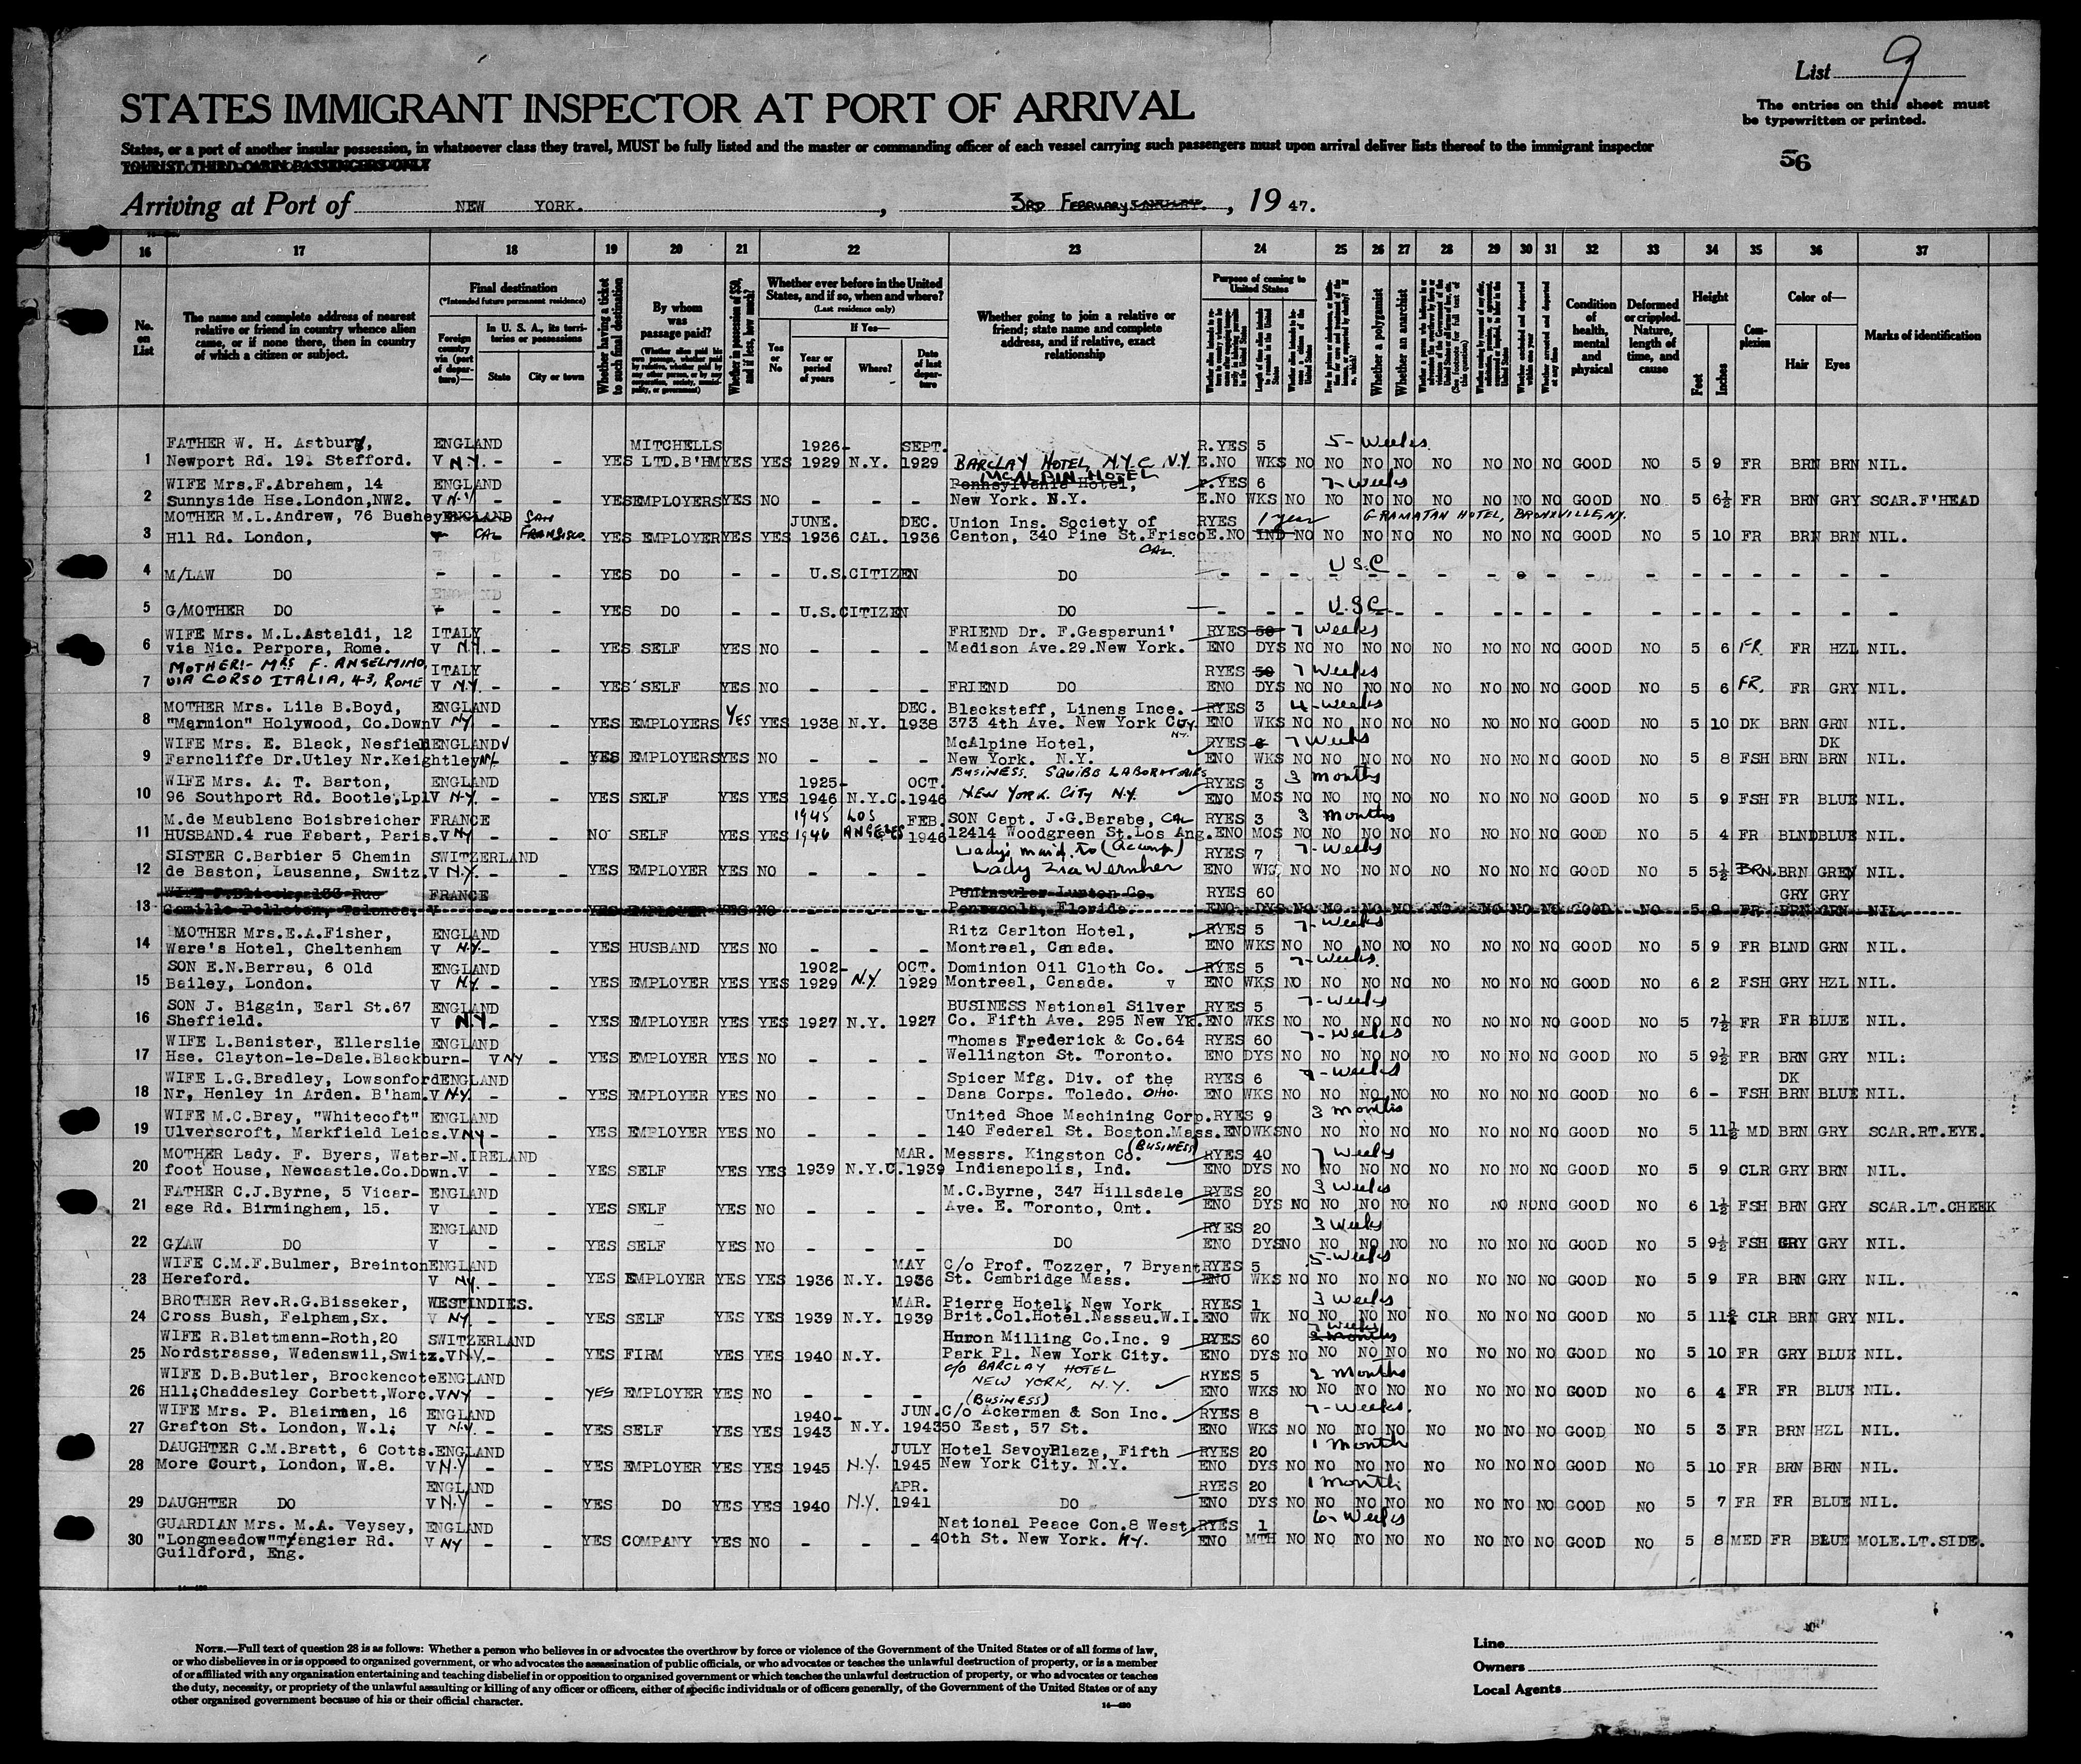 List 9
STATES IMMIGRANT INSPECTOR AT PORT OF ARRIVAL
The entries on this sheet must
be typewritten or printed.
States, or a port of another insular possession, in whatsoever class they travel, MUST be fully listed and the master or commanding officer of each vessel carrying such passengers must upon arrival deliver lists thereof to the immigrant inspector
TOURIST THIRD CABIN PASSENGERS ONLY
56
Arriving at Port of NEW YORK. , 3RD FEBRUARY , 19 47.
16 17 18 19 20 21 22 23 24 25 26 27 28 29 30 31 32 33 34 35 36 37
No. on List
The name and complete address of nearest relative or friend in country whence alien came, or if none there, then in country of which a citizen or subject.
Final destination
(*Intended future permanent residence)
Foreign country via (port of departure)—
In U. S. A., its territories or possessions
State City or town
Whether having a ticket to such final destination
By whom was passage paid?
Whether in possession of $50, and if less, how much?
Whether ever before in the United States, and if so, when and where?
(Last residence only)
Yes or No
If Yes—
Year or period of years Where? Date of last departure
Whether going to join a relative or friend; state name and complete address, and if relative, exact relationship
Purpose of coming to United States
Whether a polygamist
Whether an anarchist
Condition of health, mental and physical
Deformed or crippled. Nature, length of time, and cause
Height
Feet Inches
Complexion
Color of—
Hair Eyes
Marks of identification
FATHER W. H. Astbury, ENGLAND MITCHELLS 1926- SEPT. R.YES 5 5-Weeks
1 Newport Rd. 19. Stafford. V N.Y. - - YES LTD.B'HM YES YES 1929 N.Y. 1929 BARCLAY HOTEL N.Y.C N.Y. E.NO WKS NO NO NO NO NO NO NO NO GOOD NO 5 9 FR BRN BRN NIL.
MCALPIN HOTEL
WIFE Mrs.F.Abraham, 14 ENGLAND Pennsylvania Hotel, R.YES 6 7-Weeks
2 Sunnyside Hse.London,NW2. V N.Y - - YES EMPLOYERS YES NO - - - New York. N.Y. E.NO WKS NO NO NO NO NO NO NO NO GOOD NO 5 6½ FR BRN GRY SCAR.F'HEAD
MOTHER M.L.Andrew, 76 Bushey ENGLAND SAN JUNE. DEC. Union Ins. Society of RYES 1 year GRAMATAN HOTEL, BRONXVILLE NY.
3 Hll Rd. London, V CAL FRANSISCO. YES EMPLOYER YES YES 1936 CAL. 1936 Canton, 340 Pine St.Frisco E.NO IND NO NO NO NO NO NO NO NO GOOD NO 5 10 FR BRN BRN NIL.
CAL.
U S.C
4 M/LAW DO - - - YES DO - - U.S.CITIZEN DO - - - - - - - - - - - - - - - - - -
U.S.C.
5 G/MOTHER DO V - - YES DO - - U.S.CITIZEN DO - - - - - - - - - - - - - - - - - -
WIFE Mrs. M.L.Astaldi, 12 ITALY FRIEND Dr. F.Gasparuni' RYES 50 7 Weeks
6 via Nic. Parpora, Rome. V N.Y. - - YES SELF YES NO - - - Madison Ave.29.New York. ENO DYS NO NO NO NO NO NO NO NO GOOD NO 5 6 FR. FR HZL NIL.
MOTHER:- MRS F. ANSELMINO, ITALY RYES 50 7 Weeks
7 VIA CORSO ITALIA, 43, ROME V N.Y. - - YES SELF YES NO - - - FRIEND DO ENO DYS NO NO NO NO NO NO NO NO GOOD NO 5 6 FR. FR GRY NIL.
MOTHER Mrs. Lila B.Boyd, ENGLAND DEC. Blackstaff, Linens Ince. RYES 3 4-weeks
8 "Marmion" Holywood, Co.Down V NY - - YES EMPLOYERS YES YES 1938 N.Y. 1938 373 4th Ave. New York City N.Y. ENO WKS NO NO NO NO NO NO NO NO GOOD NO 5 10 DK BRN GRN NIL.
WIFE Mrs. E. Black, Nesfield ENGLAND McAlpine Hotel, RYES 6 7 Weeks DK
9 Farncliffe Dr.Utley Nr.Keightley NY - YES EMPLOYERS YES NO - - - New York. N.Y. ENO WKS NO NO NO NO NO NO NO NO GOOD NO 5 8 FSH BRN BRN NIL.
WIFE Mrs. A. T. Barton, ENGLAND 1925- OCT. BUSINESS. SQUIBB LABORATORIES RYES 3 3 months
10 96 Southport Rd. Bootle,Lpl V N.Y. - - YES SELF YES YES 1946 N.Y.C. 1946 NEW YORK. CITY N.Y. ENO MOS NO NO NO NO NO NO NO NO GOOD NO 5 9 FSH FR BLUE NIL.
M.de Maublanc Boisbreicher FRANCE 1945 LOS FEB. SON Capt. J.G.Barabe, CAL RYES 3 3 Months
11 HUSBAND.4 rue Fabert, Paris. V NY - - NO SELF YES YES 1946 ANGELES 1946 12414 Woodgreen St.Los Ang. ENO MOS NO NO NO NO NO NO NO NO GOOD NO 5 4 FR BLND BLUE NIL.
SISTER C.Barbier 5 Chemin SWITZERLAND Lady's maid. to (Accomp) RYES 7 7-Weeks
12 de Baston, Lausanne, Switz. V N.Y. - - YES EMPLOYER YES NO - - - Lady Zia Wernher ENO WKS NO NO NO NO NO NO NO NO GOOD NO 5 5½ BRN. BRN GREN NIL.
FRANCE Peninsular Lupton Co. RYES 60 GRY GRY
13 Camille Pelletan, Talence. V YES EMPLOYER YES NO Pensacola, Florida. ENO DYS NO NO NO NO NO NO NO NO GOOD NO 5 8 FR BRN GRN NIL
MOTHER Mrs.E.A.Fisher, ENGLAND Ritz Carlton Hotel, RYES 5 7-Weeks
14 Ware's Hotel, Cheltenham V N.Y.- - YES HUSBAND YES NO - - - Montreal, Canada. ENO WKS NO NO NO NO NO NO NO NO GOOD NO 5 9 FR BLND GRN NIL.
SON E.N.Barrau, 6 Old ENGLAND 1902- OCT. Dominion Oil Cloth Co. RYES 5 7-Weeks.
15 Bailey, London. V N.Y. - - YES EMPLOYER YES YES 1929 N.Y. 1929 Montreal, Canada. V ENO WKS NO NO NO NO NO NO NO NO GOOD NO 6 2 FSH GRY HZL NIL.
SON J. Biggin, Earl St.67 ENGLAND BUSINESS National Silver RYES 5 7-Weeks
16 Sheffield. V N.Y.- - YES EMPLOYER YES YES 1927 N.Y. 1927 Co. Fifth Ave. 295 New Yk. ENO WKS NO NO NO NO NO NO NO NO GOOD NO 5 7½ FR FR BLUE NIL.
WIFE L.Banister, Ellerslie ENGLAND Thomas Frederick & Co.64 RYES 60 7-Weeks
17 Hse. Clayton-le-Dale.Blackburn- V NY - YES EMPLOYER YES NO - - - Wellington St. Toronto. ENO DYS NO NO NO NO NO NO NO NO GOOD NO 5 9½ FR BRN GRY NIL:
WIFE L.G.Bradley, Lowsonford ENGLAND Spicer Mfg. Div. of the RYES 6 7-Weeks DK
18 Nr, Henley in Arden. B'ham. V N.Y. - - YES EMPLOYER YES NO - - - Dana Corps. Toledo. OHIO. ENO WKS NO NO NO NO NO NO NO NO GOOD NO 6 - FSH BRN BLUE NIL.
WIFE M.C.Bray, "Whitecoft" ENGLAND United Shoe Machining Corp. RYES 9 3 months
19 Ulverscroft, Markfield Leics. V NY - - YES EMPLOYER YES NO - - - 140 Federal St. Boston.Mass. ENO WKS NO NO NO NO NO NO NO NO GOOD NO 5 11½ MD BRN GRY SCAR.RT.EYE.
MOTHER Lady. F. Byers, Water- N.IRELAND MAR. Messrs. Kingston Co. (BUSINESS) RYES 40 7 Weeks
20 foot House, Newcastle.Co.Down. V - - YES SELF YES YES 1939 N.Y.C. 1939 Indianapolis, Ind. ENO DYS NO NO NO NO NO NO NO NO GOOD NO 5 9 CLR GRY BRN NIL.
FATHER C.J.Byrne, 5 Vicar- ENGLAND M.C.Byrne, 347 Hillsdale RYES 20 3 Weeks
21 age Rd. Birmingham, 15. V - - YES SELF YES NO - - - Ave. E. Toronto, Ont. ENO DYS NO NO NO NO NO NO NO NO GOOD NO 6 1½ FSH BRN GRY SCAR.LT.CHEEK
ENGLAND RYES 20 3 Weeks
22 G/LAW DO V - - YES SELF YES NO - - - DO ENO DYS NO NO NO NO NO NO NO NO GOOD NO 5 9½ FSH GRY GRY NIL.
WIFE C.M.F.Bulmer, Breinton ENGLAND MAY C/o Prof. Tozzer, 7 Bryant RYES 5 5-Weeks
23 Hereford. V NY. - - YES EMPLOYER YES YES 1936 N.Y. 1936 St. Cambridge Mass. ENO WKS NO NO NO NO NO NO NO NO GOOD NO 5 9 FR BRN GRY NIL.
BROTHER Rev.R.G.Bisseker, WESTINDIES. MAR. Pierre Hotel, New York RYES 1 3 Weeks
24 Cross Bush, Felpham,Sx. V NY. - - YES SELF YES YES 1939 N.Y. 1939 Brit.Col.Hotel.Nassau.W.I. ENO WK NO NO NO NO NO NO NO NO GOOD NO 5 11½ CLR BRN GRY NIL.
WIFE R.Blattmann-Roth,20 SWITZERLAND Huron Milling Co.Inc. 9 RYES 60 7 weeks
25 Nordstrasse, Wadenswil,Switz. V N.Y.- - YES FIRM YES YES 1940 N.Y. Park Pl. New York City. ENO DYS NO NO NO NO NO NO NO NO GOOD NO 5 10 FR GRY BLUE NIL.
WIFE D.B.Butler, Brockencote ENGLAND c/o BARCLAY HOTEL RYES 5 2 Months
26 Hll;Chaddesley Corbett,Worc. V NY - - YES EMPLOYER YES NO - - - NEW YORK, N.Y. ENO WKS NO NO NO NO NO NO NO NO GOOD NO 6 4 FR FR BLUE NIL.
(BUSINESS)
WIFE Mrs. P. Blairman, 16 ENGLAND 1940- JUN. C/o Ackerman & Son Inc. RYES 8 7-Weeks.
27 Grafton St. London, W.1; V N.Y. - - YES SELF YES YES 1943 N.Y. 1943 50 East, 57 St. ENO WKS NO NO NO NO NO NO NO NO GOOD NO 5 3 FR BRN HZL NIL.
DAUGHTER C.M.Bratt, 6 Cotts. ENGLAND JULY Hotel SavoyPlaza, Fifth RYES 20 1 month
28 More Court, London, W.8. V N.Y - - YES EMPLOYER YES YES 1945 N.Y. 1945 New York City. N.Y. ENO DYS NO NO NO NO NO NO NO NO GOOD NO 5 10 FR BRN BRN NIL.
ENGLAND APR. RYES 20 1 month
29 DAUGHTER DO V N.Y - - YES DO YES YES 1940 N.Y. 1941 DO ENO DYS NO NO NO NO NO NO NO NO GOOD NO 5 7 FR FR BLUE NIL.
GUARDIAN Mrs. M.A. Veysey, ENGLAND National Peace Con.8 West RYES 1 6-Weeks
30 "Longmeadow"Trangier Rd. V NY - - YES COMPANY YES NO - - - 40th St. New York. N.Y. ENO MTH NO NO NO NO NO NO NO NO GOOD NO 5 8 MED FR BLUE MOLE.LT.SIDE.
Guildford, Eng.
NOTE.—Full text of question 28 is as follows: Whether a person who believes in or advocates the overthrow by force or violence of the Government of the United States or of all forms of law,
or who disbelieves in or is opposed to organized government, or who advocates the assassination of public officials, or who advocates or teaches the unlawful destruction of property, or is a member
of or affiliated with any organization entertaining and teaching disbelief in or opposition to organized government or which teaches the unlawful destruction of property, or who advocates or teaches
the duty, necessity, or propriety of the unlawful assaulting or killing of any officer or officers, either of specific individuals or of officers generally, of the Government of the United States or of any
other organized government because of his or their official character.
14—420
Line
Owners
Local Agents